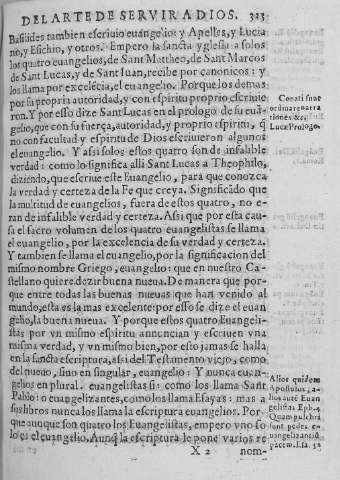 DEL ARTE DE SERVIR A DIOS. 323
Basilides tambien escriuio euangelio: y Apelles, y Lucia
no, y Esichio, y otros. Empero la sancta yglesia a solos
los quatro euangelios, de Sant Mattheo, de Sant Marcos
de Sant Lucas, y de Sant Iuan, recibe por canonicos: y
los llama por excelécia, el euangelio. Porque los demas
por su propria autoridad, y con espiritu proprio escriuie
ron. Y por esso dize Sant Lucas en el prologo de su euã
gelio, que con su fuerça, autoridad, y proprio espiritu, q̃
no con facultad y espiritu de Dios escriuieron algunos
el euangelio. Y assi solos estos quatro son de infalible
verdad: como lo significa alli Sant Lucas a Theophilo,
diziendo, que escriue este Euangelio, para que conozca
la verdad y certeza de la Fe que creya. Significãdo que
la multitud de euangelios, fuera de estos quatro, no e-
ran de infalible verdad y certeza. Assi que por esta cau
sa el sacro volumen de los quatro euangelistas se llama
el euangelio, por la excelencia de su verdad y certeza.
Y tambien se llama el euangelio, por la significacion del
mismo nombre Griego, euangelio: que en nuestro Ca-
stellano quiere dezir buena nueua. De manera que por-
que entre todas las buenas nueuas que han venido al
mundo, esta es la mas excelente: por esso se dize el euan
gelio, la buena nueua. Y porque estos quatro Euangeli-
stas por vn mismo espiritu annencian y escriuen vna
misma verdad, y vn mismo bien, por esto jamas se halla
en la sancta escriptura, assi del Testamento viejo, como
del nueuo, sino en singular, euangelio: Y nunca euan-
gelios en plural. euangelistas si: como los llama Sant
Pablo: o euangelizantes, como los llama Esayas: mas a
sus libros nunca los llama la escriptura euangelios. Por-
que aunque son quatro los Euangelistas, empero vno so
lo es el euangelio. Aunq̃ la escriptura le pone varios re
X 2 nom-
Conati sunt
ordinare narra
tiones &c.
Lucæ Prologo.
Alios quidem
Apostolos, a-
lios autẽ Euan
gelistas Eph. 4
Quam pulchri
sunt pedes e-
uangelizantis
pacem. Esa. 52